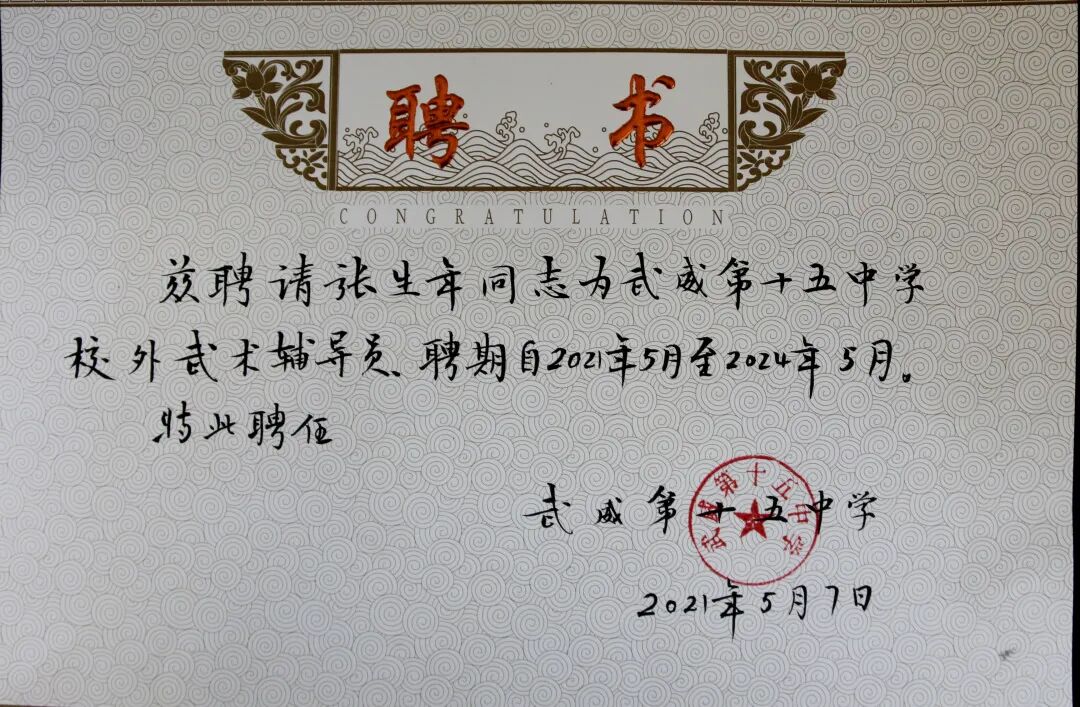 聘书
CONGRATULATION
兹聘请张生年同志为武威第十五中学
校外武术辅导员，聘期自2021年5月至2024年5月。
特此聘任
武威第十五中学
武威第十五中学
2021年5月7日